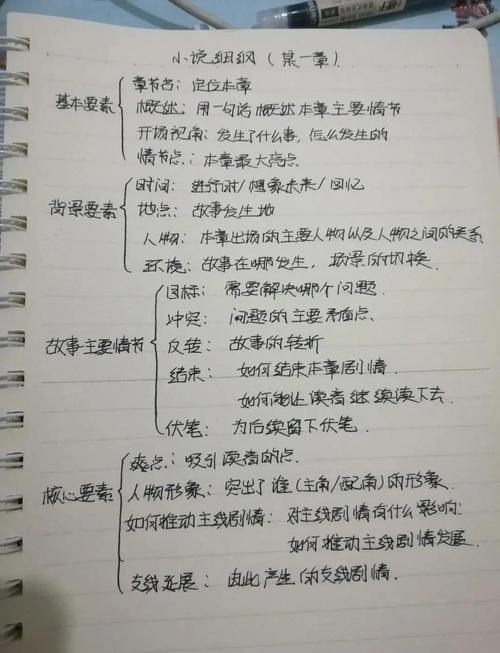 小说细纲(某一章)
基本要素
章节名:定位本章
概述:用一句话概述本章主要情节
开场视角:发生了什么事,怎么发生的
情节点:本章最大亮点
背景要素
时间:进行时/想象未来/回忆
地点:故事发生地
人物:本章出场的主要人物以及人物之间的关系
环境:故事在哪发生,场景的切换.
故事主要情节
目标:需要解决哪个问题.
冲突:问题的主要矛盾点.
反转:故事的转折
结束:如何结束本章剧情.
如何能让读者继续读下去.
伏笔:为后续留下伏笔.
核心要素
爽点:吸引读者的点.
人物形象:突出了谁(主角/配角)的形象.
如何推动主线剧情:对主线剧情有什么影响;
如何推动主线剧情发展.
支线延展:由此产生的支线剧情.